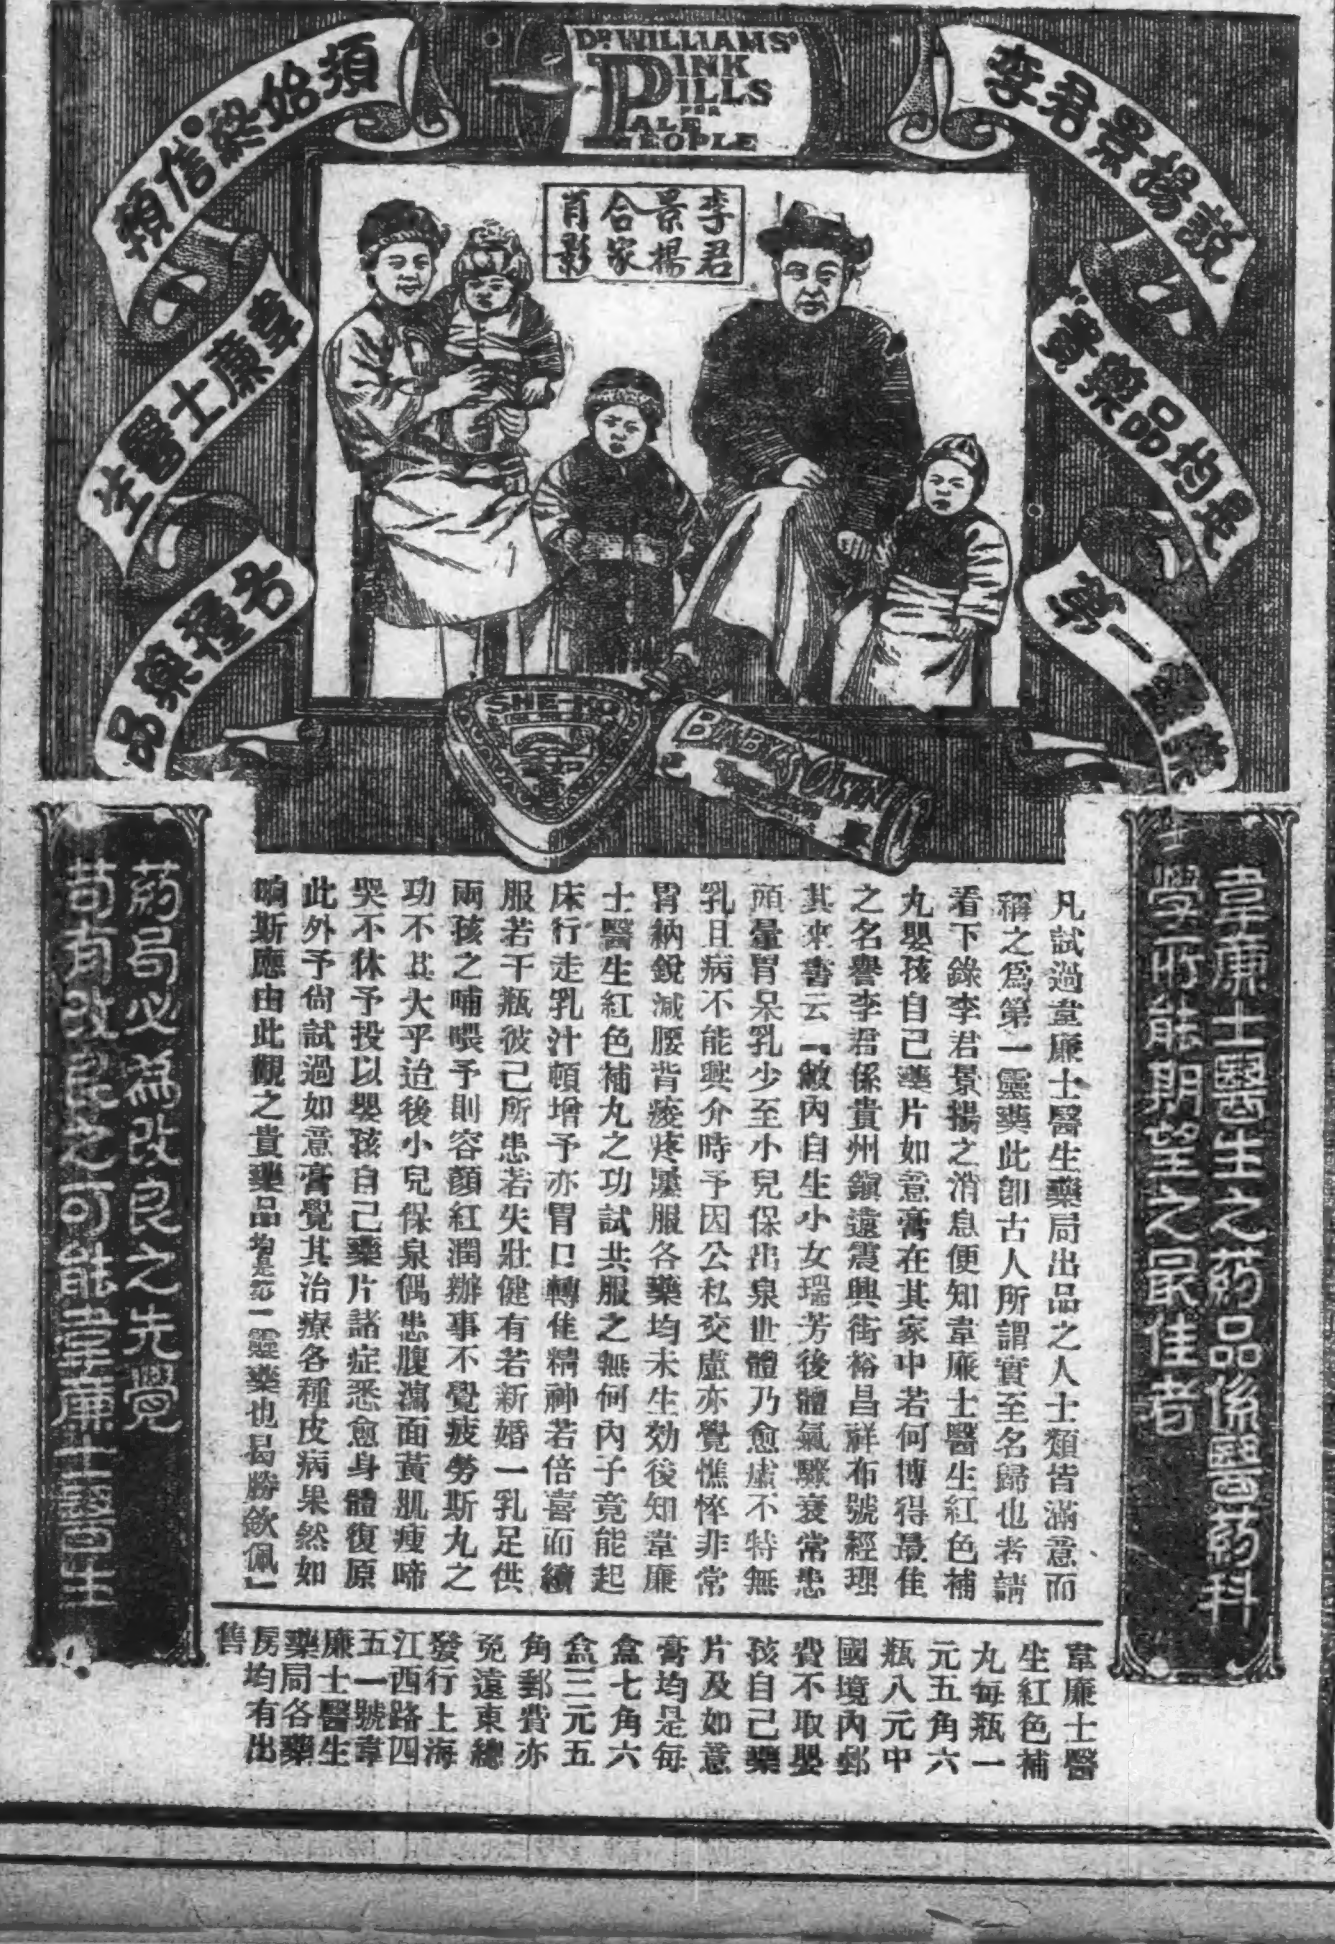 DR. WILLIAMS'
PINK
PILLS
FOR
PALE
PEOPLE
李君景揚說
貴藥品均是
第一靈藥
須始終信賴
韋廉士醫生
各種藥品
李君
景揚
合家
肖影
SHE-KO
BABY'S OWN
韋廉士醫生之药品係醫药科
學所能期望之最佳者
凡試過韋廉士醫生藥局出品之人士類皆滿意而
稱之爲第一靈藥此卽古人所謂實至名歸也者請
看下錄李君景揚之消息便知韋廉士醫生紅色補
丸嬰孩自己藥片如意膏在其家中若何博得最佳
之名譽李君係貴州鎭遠震興街裕昌祥布號經理
其來書云「敝內自生小女瑞芳後體氣驟衰常患
頭暈胃呆乳少至小兒保出泉世體乃愈虛不特無
乳且病不能興介時予因公私交慮亦覺憔悴非常
胃納銳減腰背痠疼屢服各藥均未生効後知韋廉
士醫生紅色補丸之功試共服之無何內子竟能起
床行走乳汁頓增予亦胃口轉佳精神若倍喜而續
服若干瓶彼己所患若失壯健有若新婚一乳足供
兩孩之哺喂予則容顏紅潤辦事不覺疲勞斯丸之
功不其大乎迨後小兒保泉偶患腹瀉面黃肌瘦啼
哭不休予投以嬰孩自己藥片諸症悉愈身體復原
此外予尙試過如意膏覺其治療各種皮病果然如
響斯應由此觀之貴藥品均是第一靈藥也曷勝欽佩」
药局必為改良之先覺
苟有改良之可能韋廉士醫生
韋廉士醫
生紅色補
丸每瓶一
元五角六
瓶八元中
國境內郵
費不取嬰
孩自己藥
片及如意
膏均是每
盒七角六
盒三元五
角郵費亦
免遠東總
發行上海
江西路四
五一號韋
廉士醫生
藥局各藥
房均有出
售